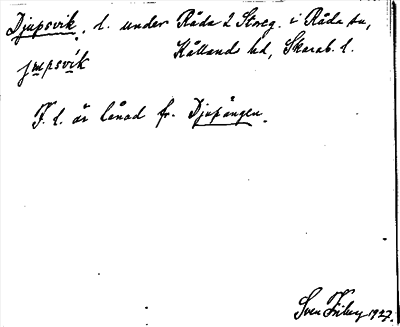 Djupsvik, l. under Råda 2 Storeg. i Råda sn,
Kållands hd, Skarab. l.
jupsvik
F. l. är lånad fr. Djupängen.
Sven Friberg 1927.